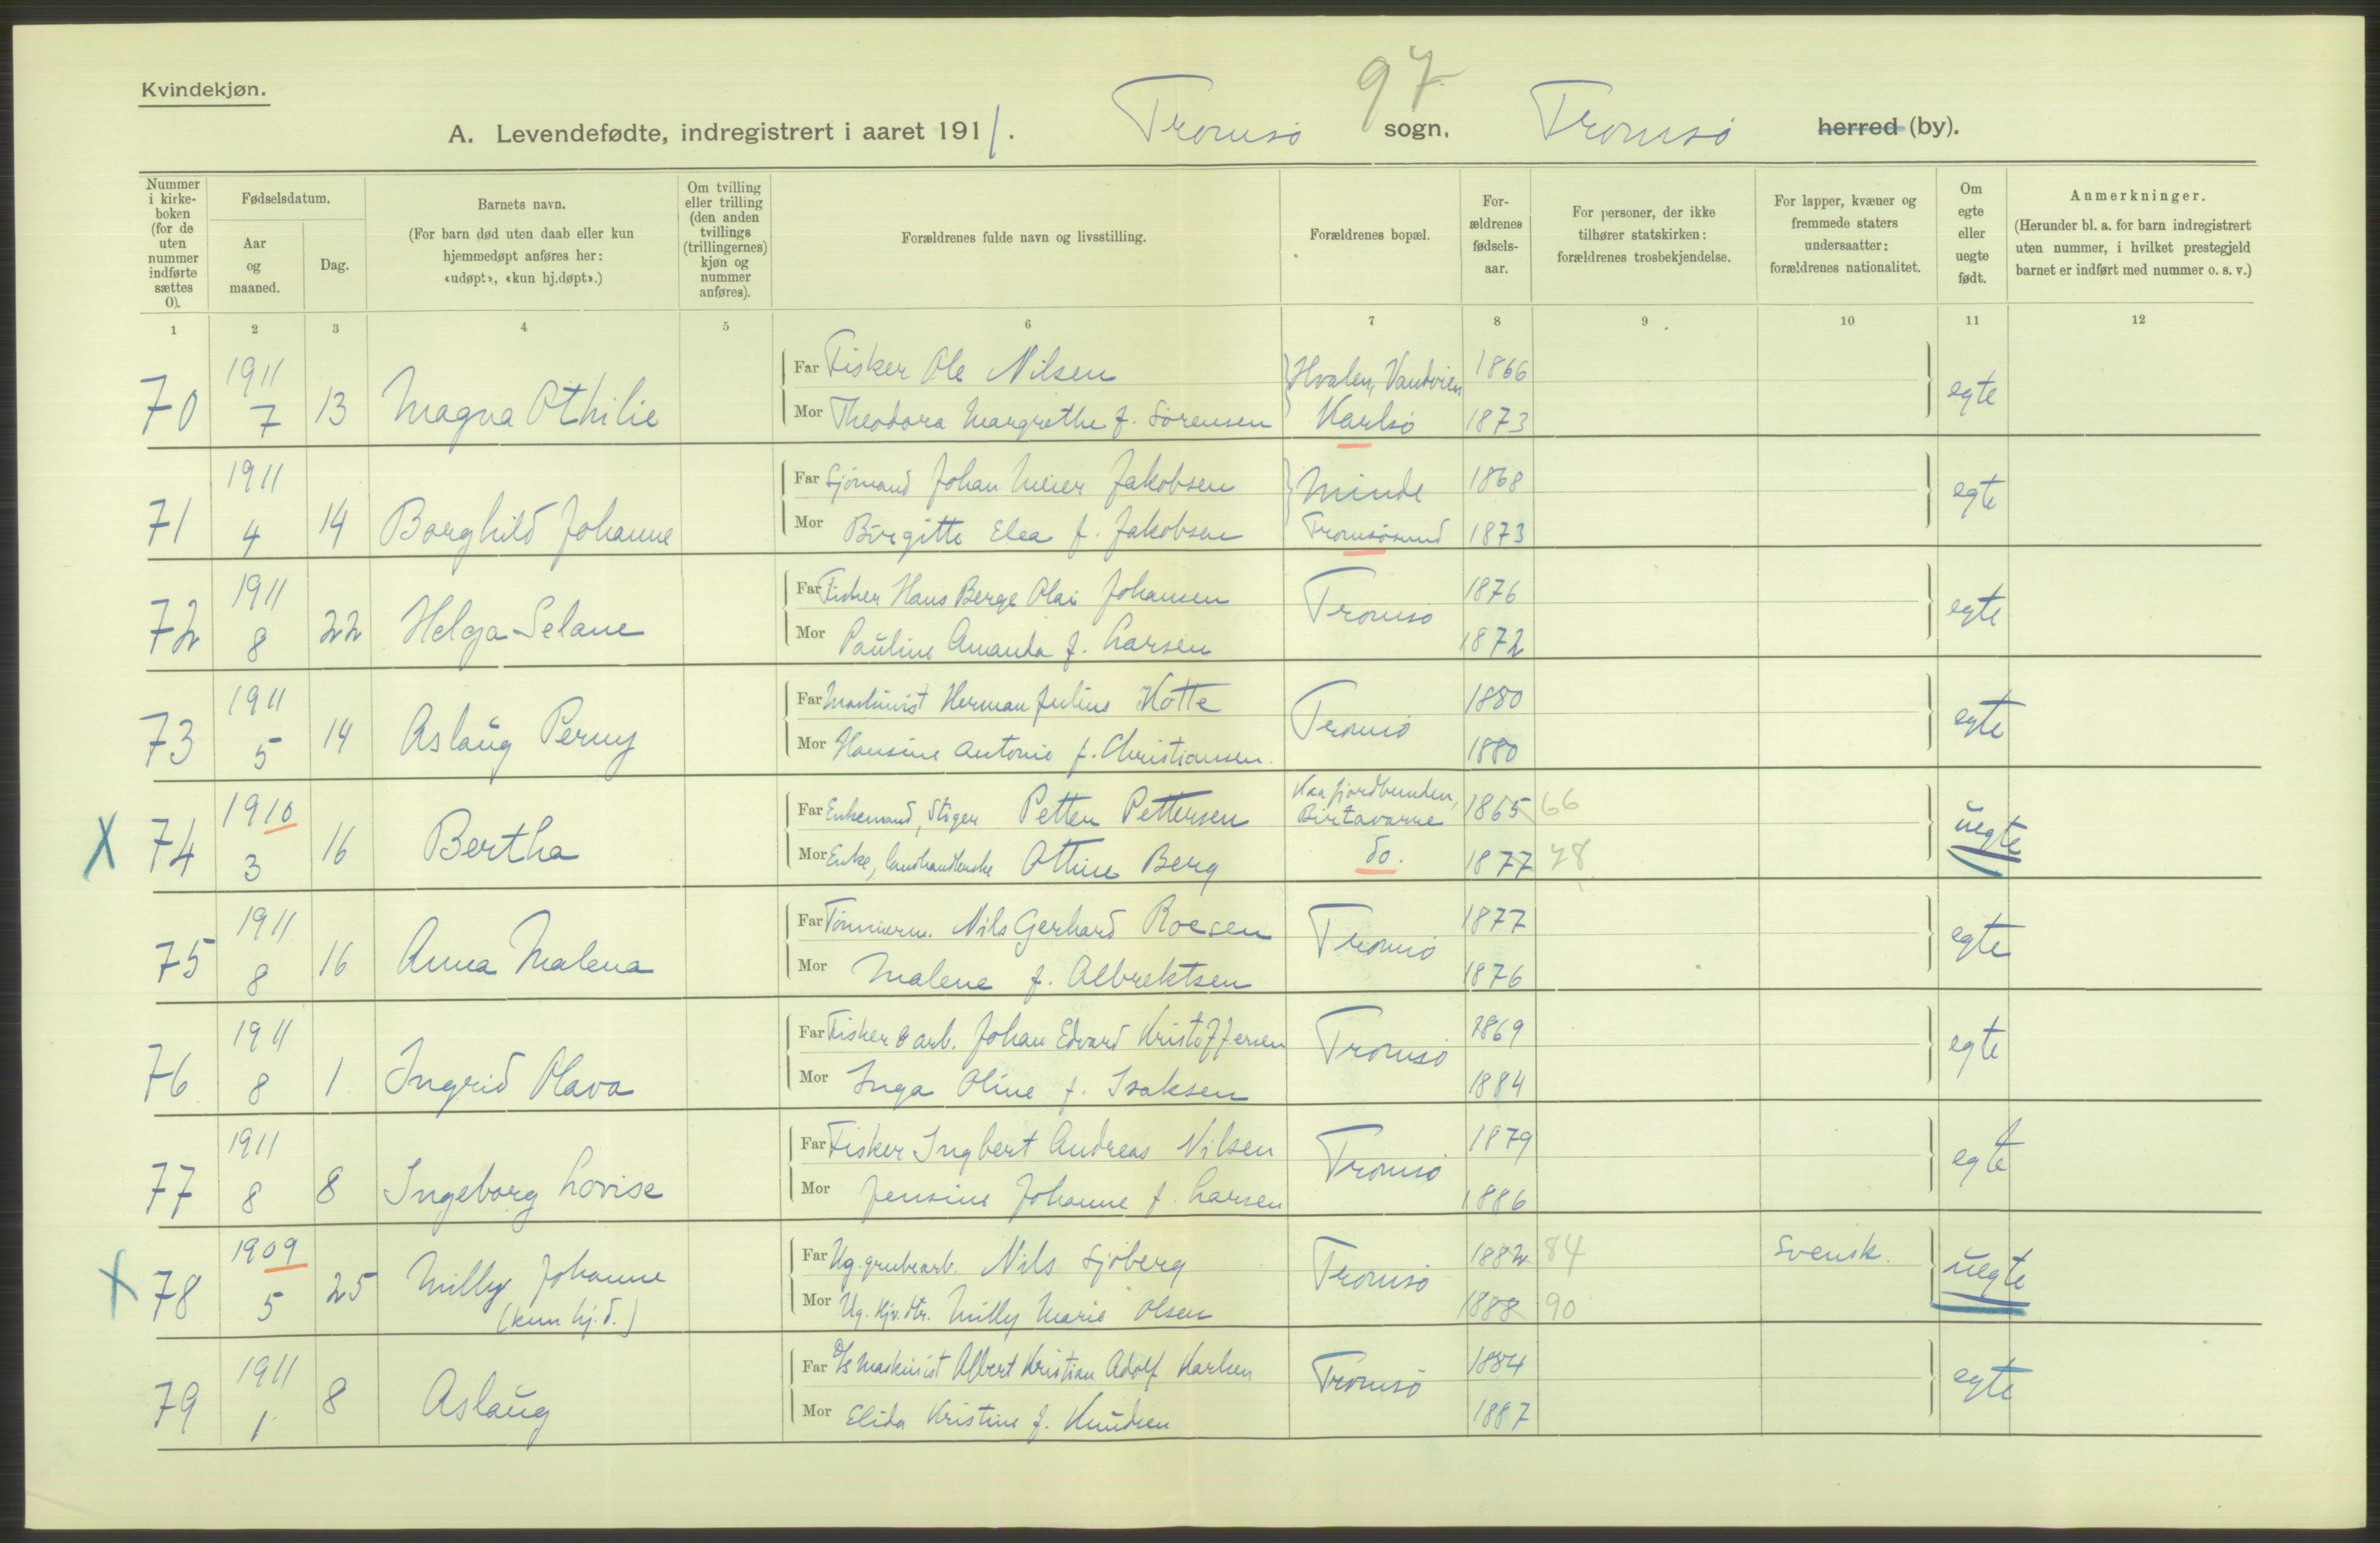 97
Kvindekjøn.
A. Levendefødte, indregistrert i aaret 1911. Tromsø sogn, Tromsø herred (by).
Nummer i kirke-boken (for de uten nummer indførte sættes 0).
Fødselsdatum.
Aar og maaned.
Dag.
Barnets navn.
(For barn død uten daab eller kun hjemmedøpt anføres her: «udøpt», «kun hj.døpt».)
Om tvilling eller trilling (den anden tvillings (trillingernes) kjøn og nummer anføres).
Forældrenes fulde navn og livsstilling.
Forældrenes bopæl.
For-ældrenes fødsels-aar.
For personer, der ikke tilhører statskirken: forældrenes trosbekjendelse.
For lapper, kvæner og fremmede staters undersaatter: forældrenes nationalitet.
Om egte eller uegte født.
Anmerkninger.
(Herunder bl. a. for barn indregistrert uten nummer, i hvilket prestegjeld barnet er indført med nummer o. s. v.)
1 2 3 4 5 6 7 8 9 10 11 12
70 1911 7 13 Magna Othilie
Far Fisker Ole Nilsen Hvalen, Vandvien 1866 egte
Mor Theodora Margrethe f. Sørensen Karlsø 1873
71 1911 4 14 Borghild Johanne
Far Sjømand Johan Meier Jakobsen Minde 1868 egte
Mor Birgitte Elea f. Jakobsen Tromsøsund 1873
72 1911 8 22 Helga Selane
Far Fisker Hans Berge Olai Johansen Tromsø 1876 egte
Mor Pauline Amanda f. Larsen 1872
73 1911 5 14 Aslaug Perny
Far Maskinist Herman Julius Kotte Tromsø 1880 egte
Mor Hansine Antonie f. Christiansen 1880
X 74 1910 3 16 Bertha
Far Enkemand, Stiger Petter Pettersen Kaafjordbunden, Birtavarre 1865 66 uegte
Mor Enke, landhandlerske Othine Berg do. 1877 78
75 1911 8 16 Anna Malena
Far Tømmerm. Nils Gerhard Roesen Tromsø 1877 egte
Mor Malene f. Albrektsen 1876
76 1911 8 1 Ingrid Olava
Far Fisker & arb. Johan Edvard Kristoffersen Tromsø 1869 egte
Mor Inga Oline f. Isaksen 1884
77 1911 8 8 Ingeborg Lovise
Far Fisker Ingbert Andreas Nilsen Tromsø 1879 egte
Mor Jensine Johanne f. Larsen 1886
X 78 1909 5 25 Milly Johanne (kun hj.d.)
Far Ug. grubearb. Nils Sjöberg Tromsø 1882 84 Svensk uegte
Mor Ug. Milly Marie Olsen 1888 90
79 1911 1 8 Aslaug
Far Maskinist Albert Kristian Adolf Karlsen Tromsø 1884 egte
Mor Elida Kristine f. Knudsen 1887